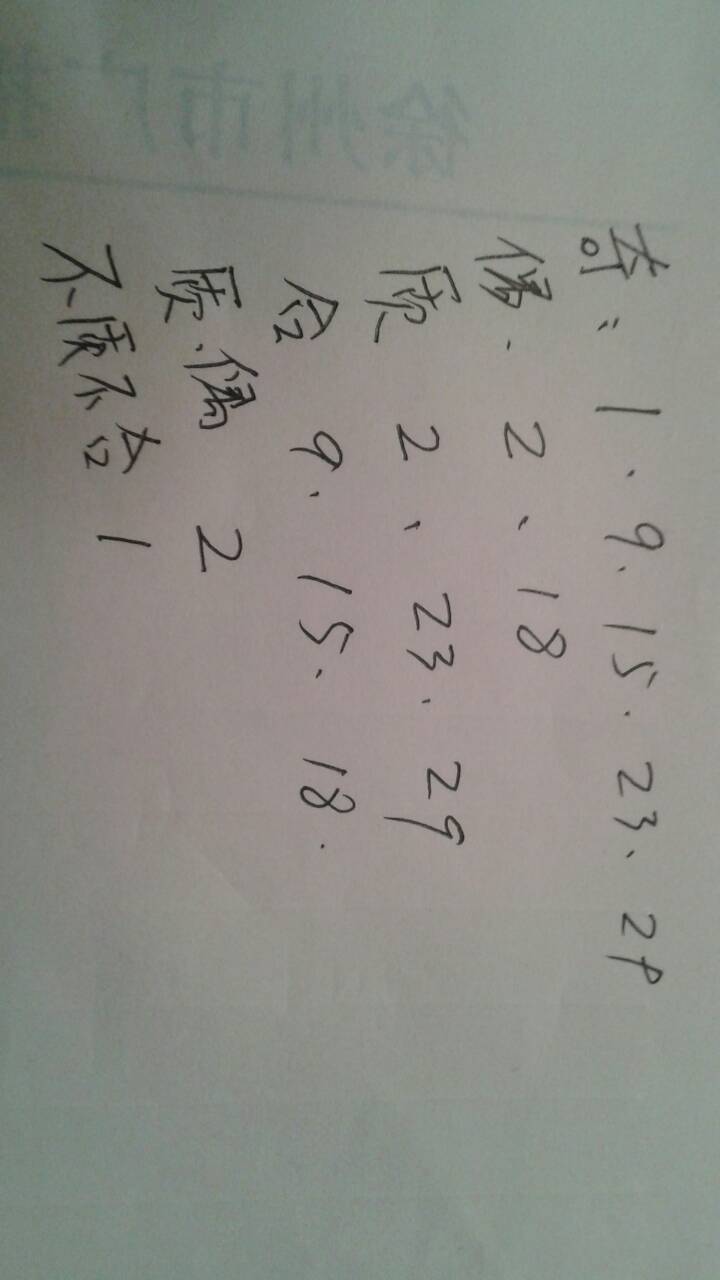 奇: 1. 9. 15. 23. 29
偶. 2、18
质 2、23. 29
合 9. 15. 18.
质.偶 2
不质不合 1
徐州市广播